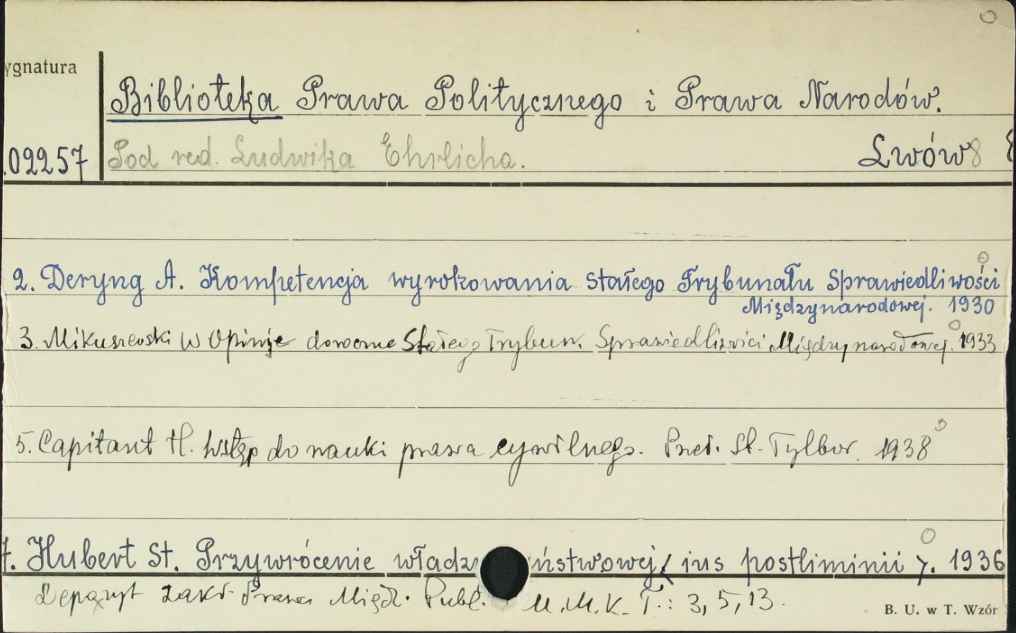 ygnatura
Biblioteka Prawa Politycznego i Prawa Narodów.
.02257 Pod red. Ludwika Ehrlicha. Lwów 8
2. Deryng A. Kompetencja wyrokowania Stałego Trybunału Sprawiedliwości
Międzynarodowej. 1930
3. Mikuszewski W Opinje doradcze Stałego Trybun. Sprawiedliwości Międzynarodowej. 1933
5. Capitant H. Wstęp do nauki prawa cywilnego. Przeł. St. Tylbor. 1938
7. Hubert St. Przywrócenie władzy ństwowej (ius postliminii). 1936
Depozyt Zakł. Prawa Międz. Publ. U.M.K. T.: 3, 5, 13.
B. U. w T. Wzór